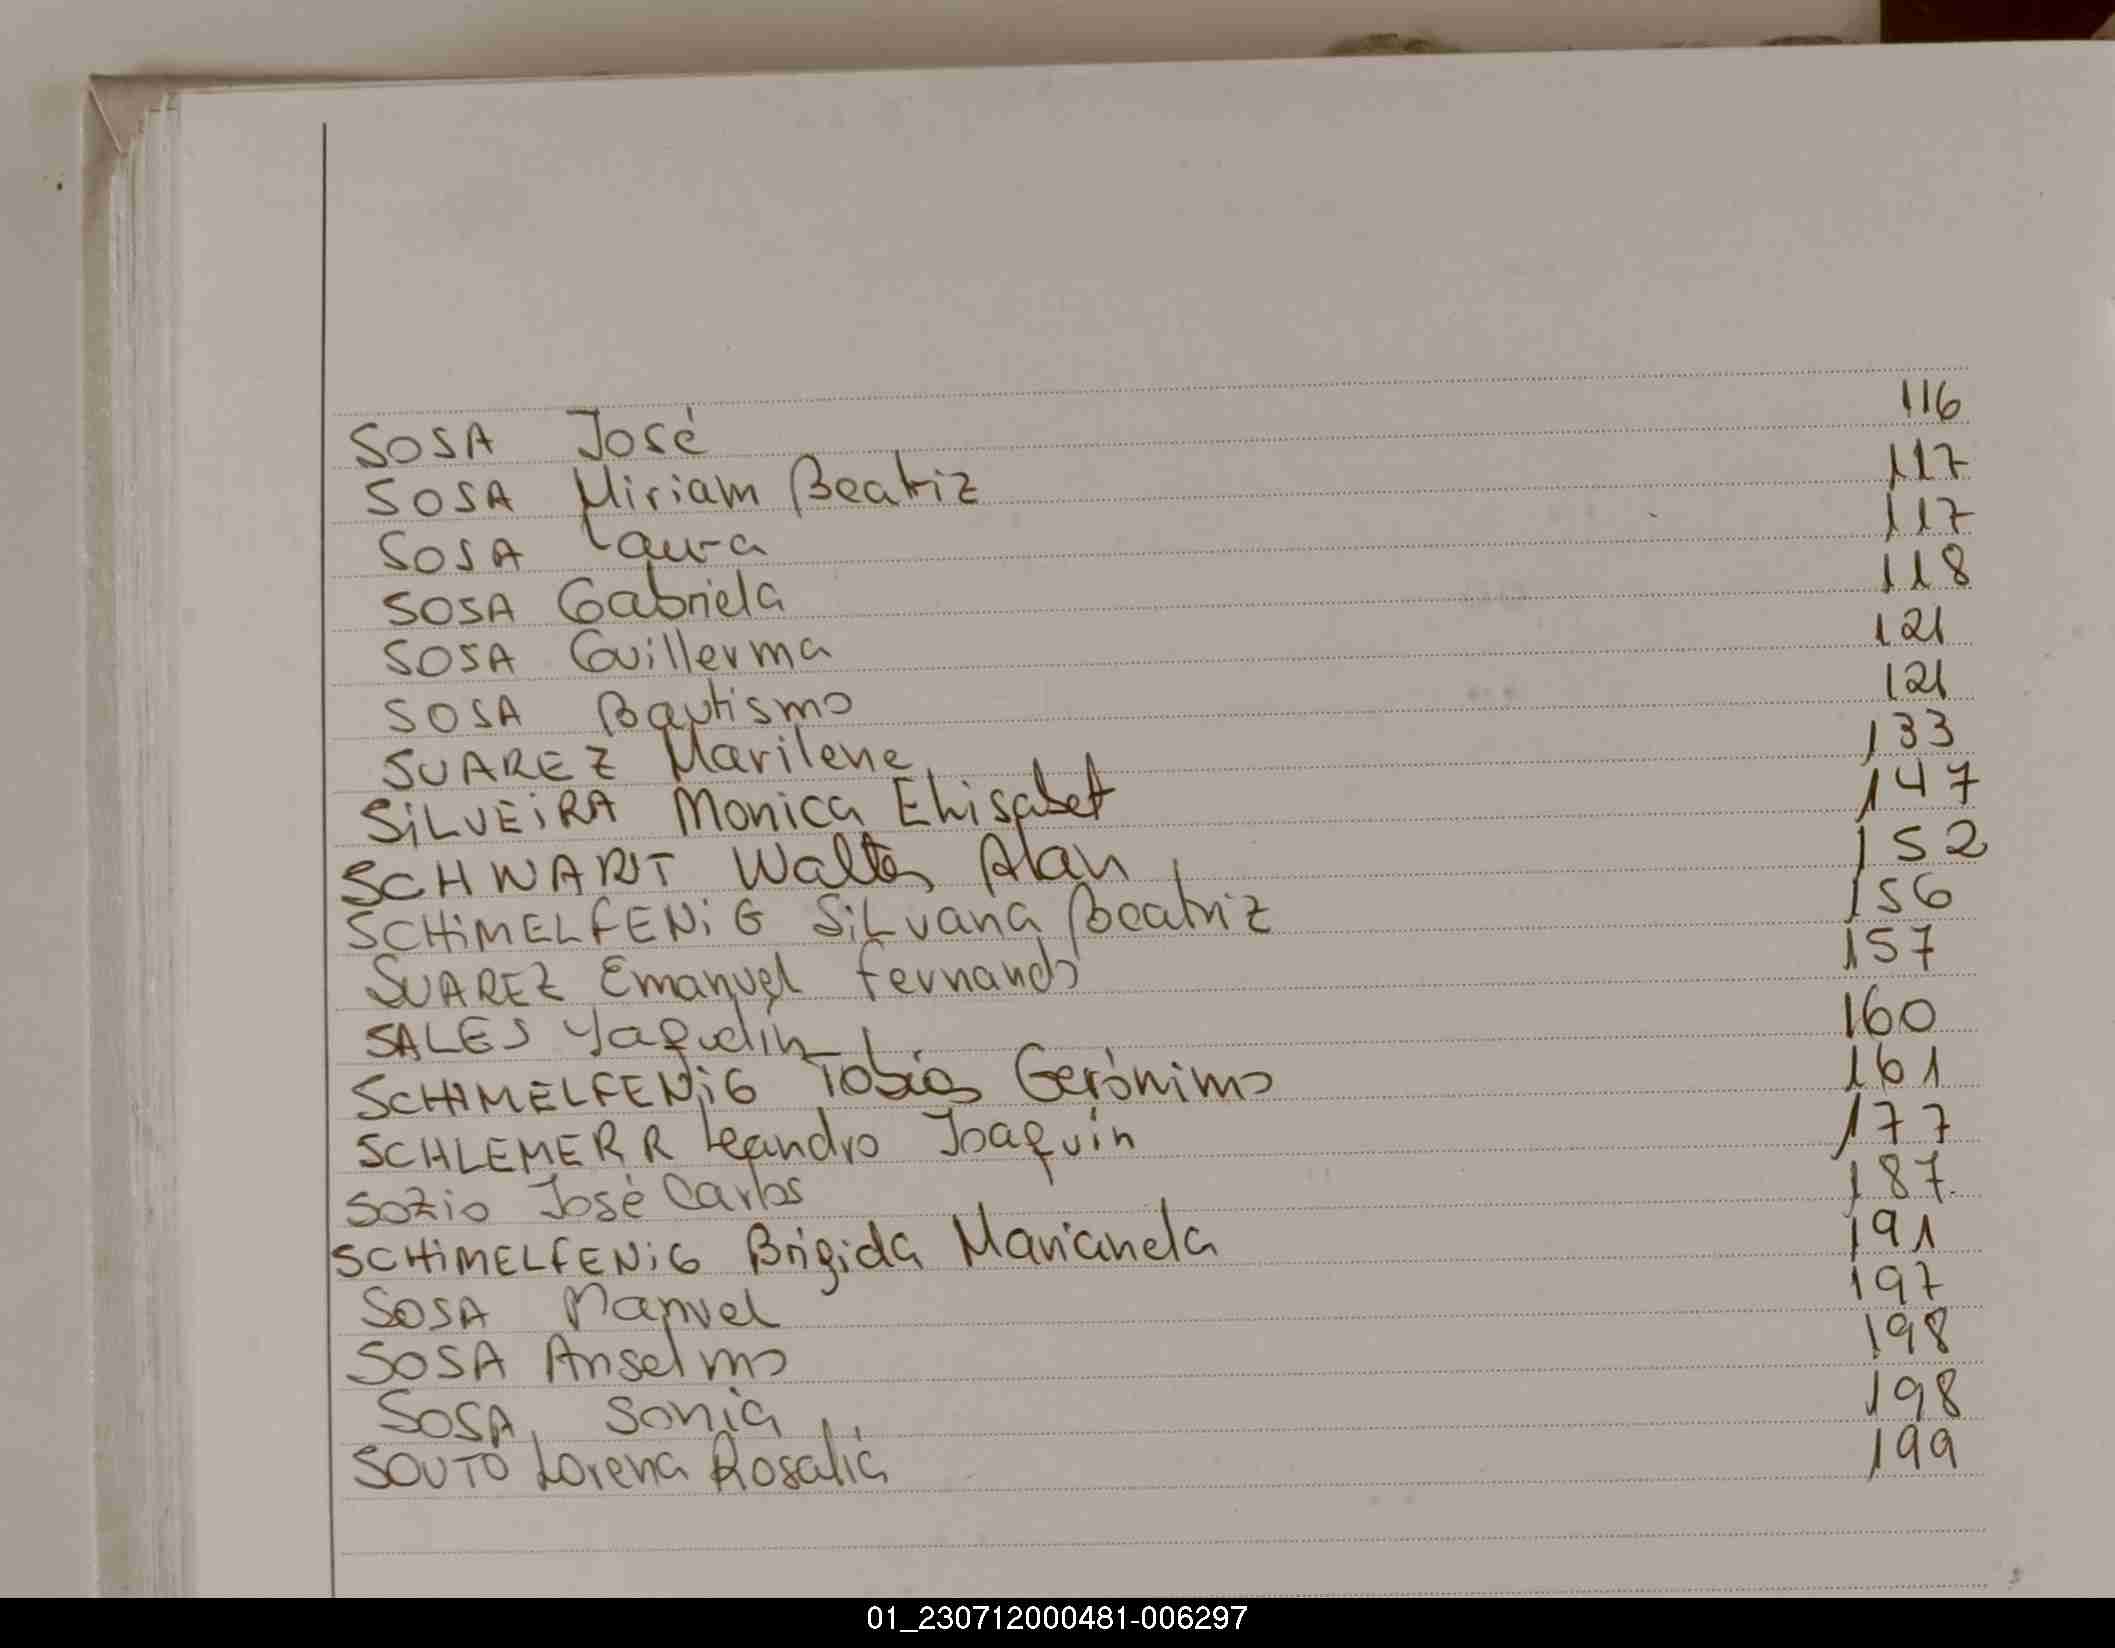 SOSA José 116
SOSA Miriam Beatriz 117
SOSA Laura 117
SOSA Gabriela 118
SOSA Guillerma 121
SOSA Bautismo 121
SUAREZ Marilene 133
SiLVEiRA Monica Elisabet 147
SCHWART Walter Alan 152
SCHiMELFENiG SiLvana Beatriz 156
SUAREZ Emanuel Fernando 157
SALES Yaquelin 160
SCHiMELFENiG Tobias Gerónimo 161
SCHLEMERR Leandro Joaquin 177
SOZio José Carlos 187
SCHiMELFENiG Brigida Marianela 191
SOSA Manuel 197
SOSA Anselmo 198
SOSA Sonia 198
SOUTO Lorena Rosalia 199
01_230712000481-006297